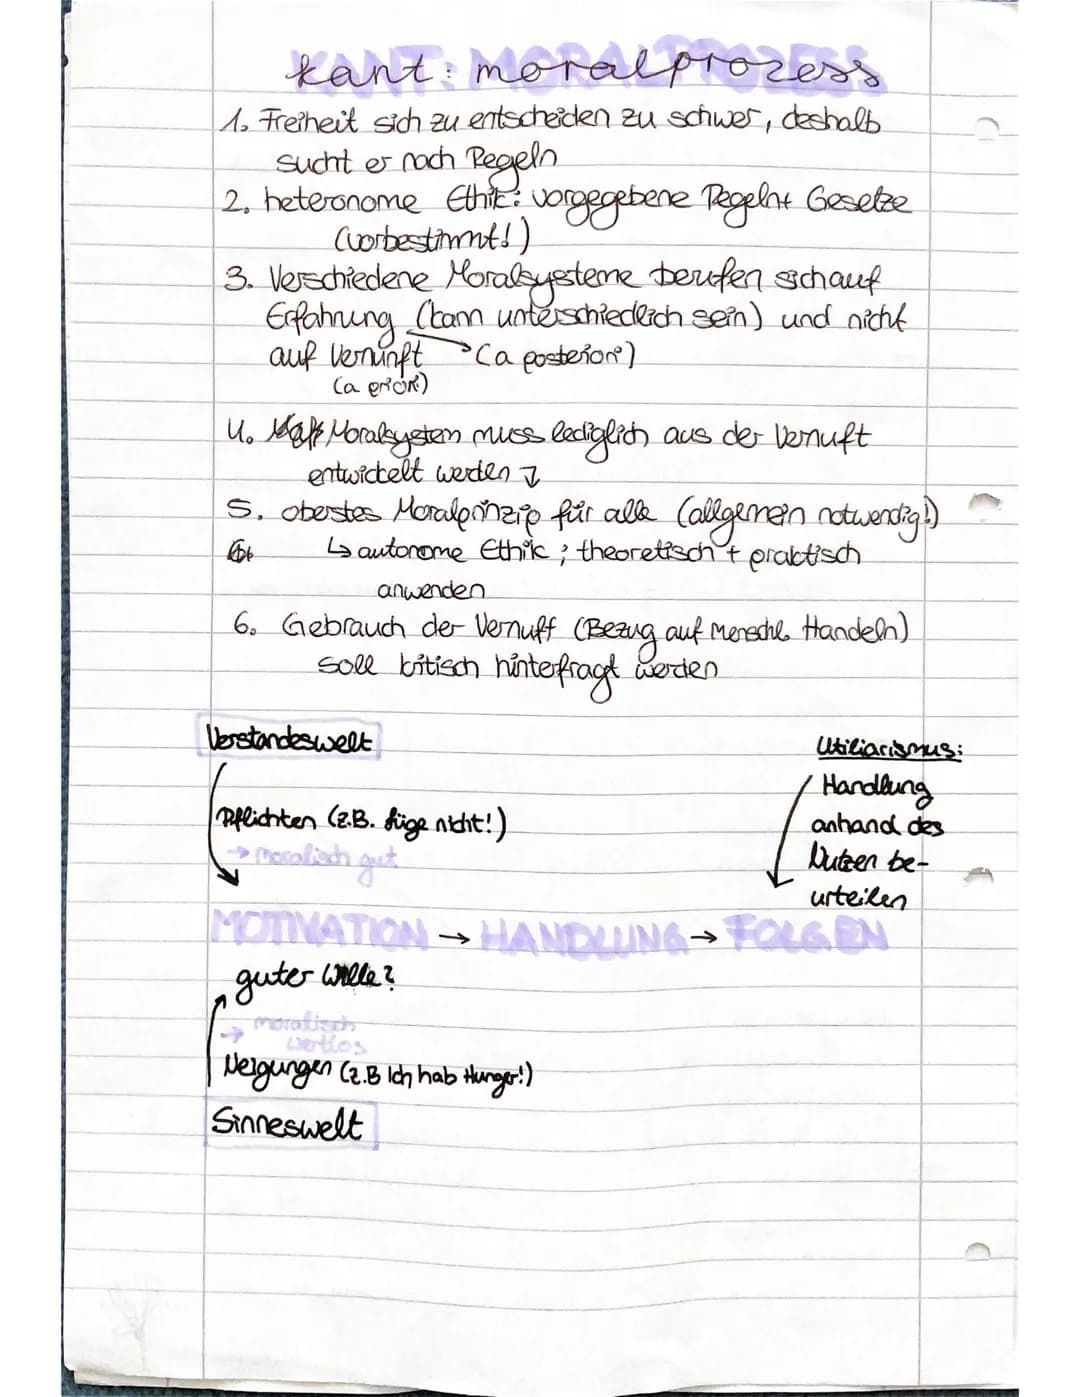 Kant: moralprozess
1. Freiheit sich zu entscheiden zu schwer, deshalb
sucht er nach Regeln
2. heteronome Ethik: vorgegebene Regeln+ Gesetze
(vorbestimmt!)
3. Verschiedene Moralsysteme berufen sich auf
Erfahrung (kann unterschiedlich sein) und nicht
auf Vernunft → (a posteriori)
(a priori)
4. Moralsystem muss lediglich aus der Vernuft
entwickelt werden ↓
5. oberstes Moralprinzip für alle (allgemein notwendig!)
↳ autonome Ethik; theoretisch + praktisch
anwenden
6. Gebrauch der Vernuft (Bezug auf menschl. Handeln)
soll kritisch hinterfragt werden
Verstandeswelt
Pflichten (z.B. lüge nicht!)
→ moralisch gut
Utiliarismus:
Handlung
anhand des
Nutzen be-
urteilen
MOTIVATION → HANDLUNG → FOLGEN
guter Wille?
→ moralisch
wertlos
Neigungen (z.B Ich hab Hunger!)
Sinneswelt